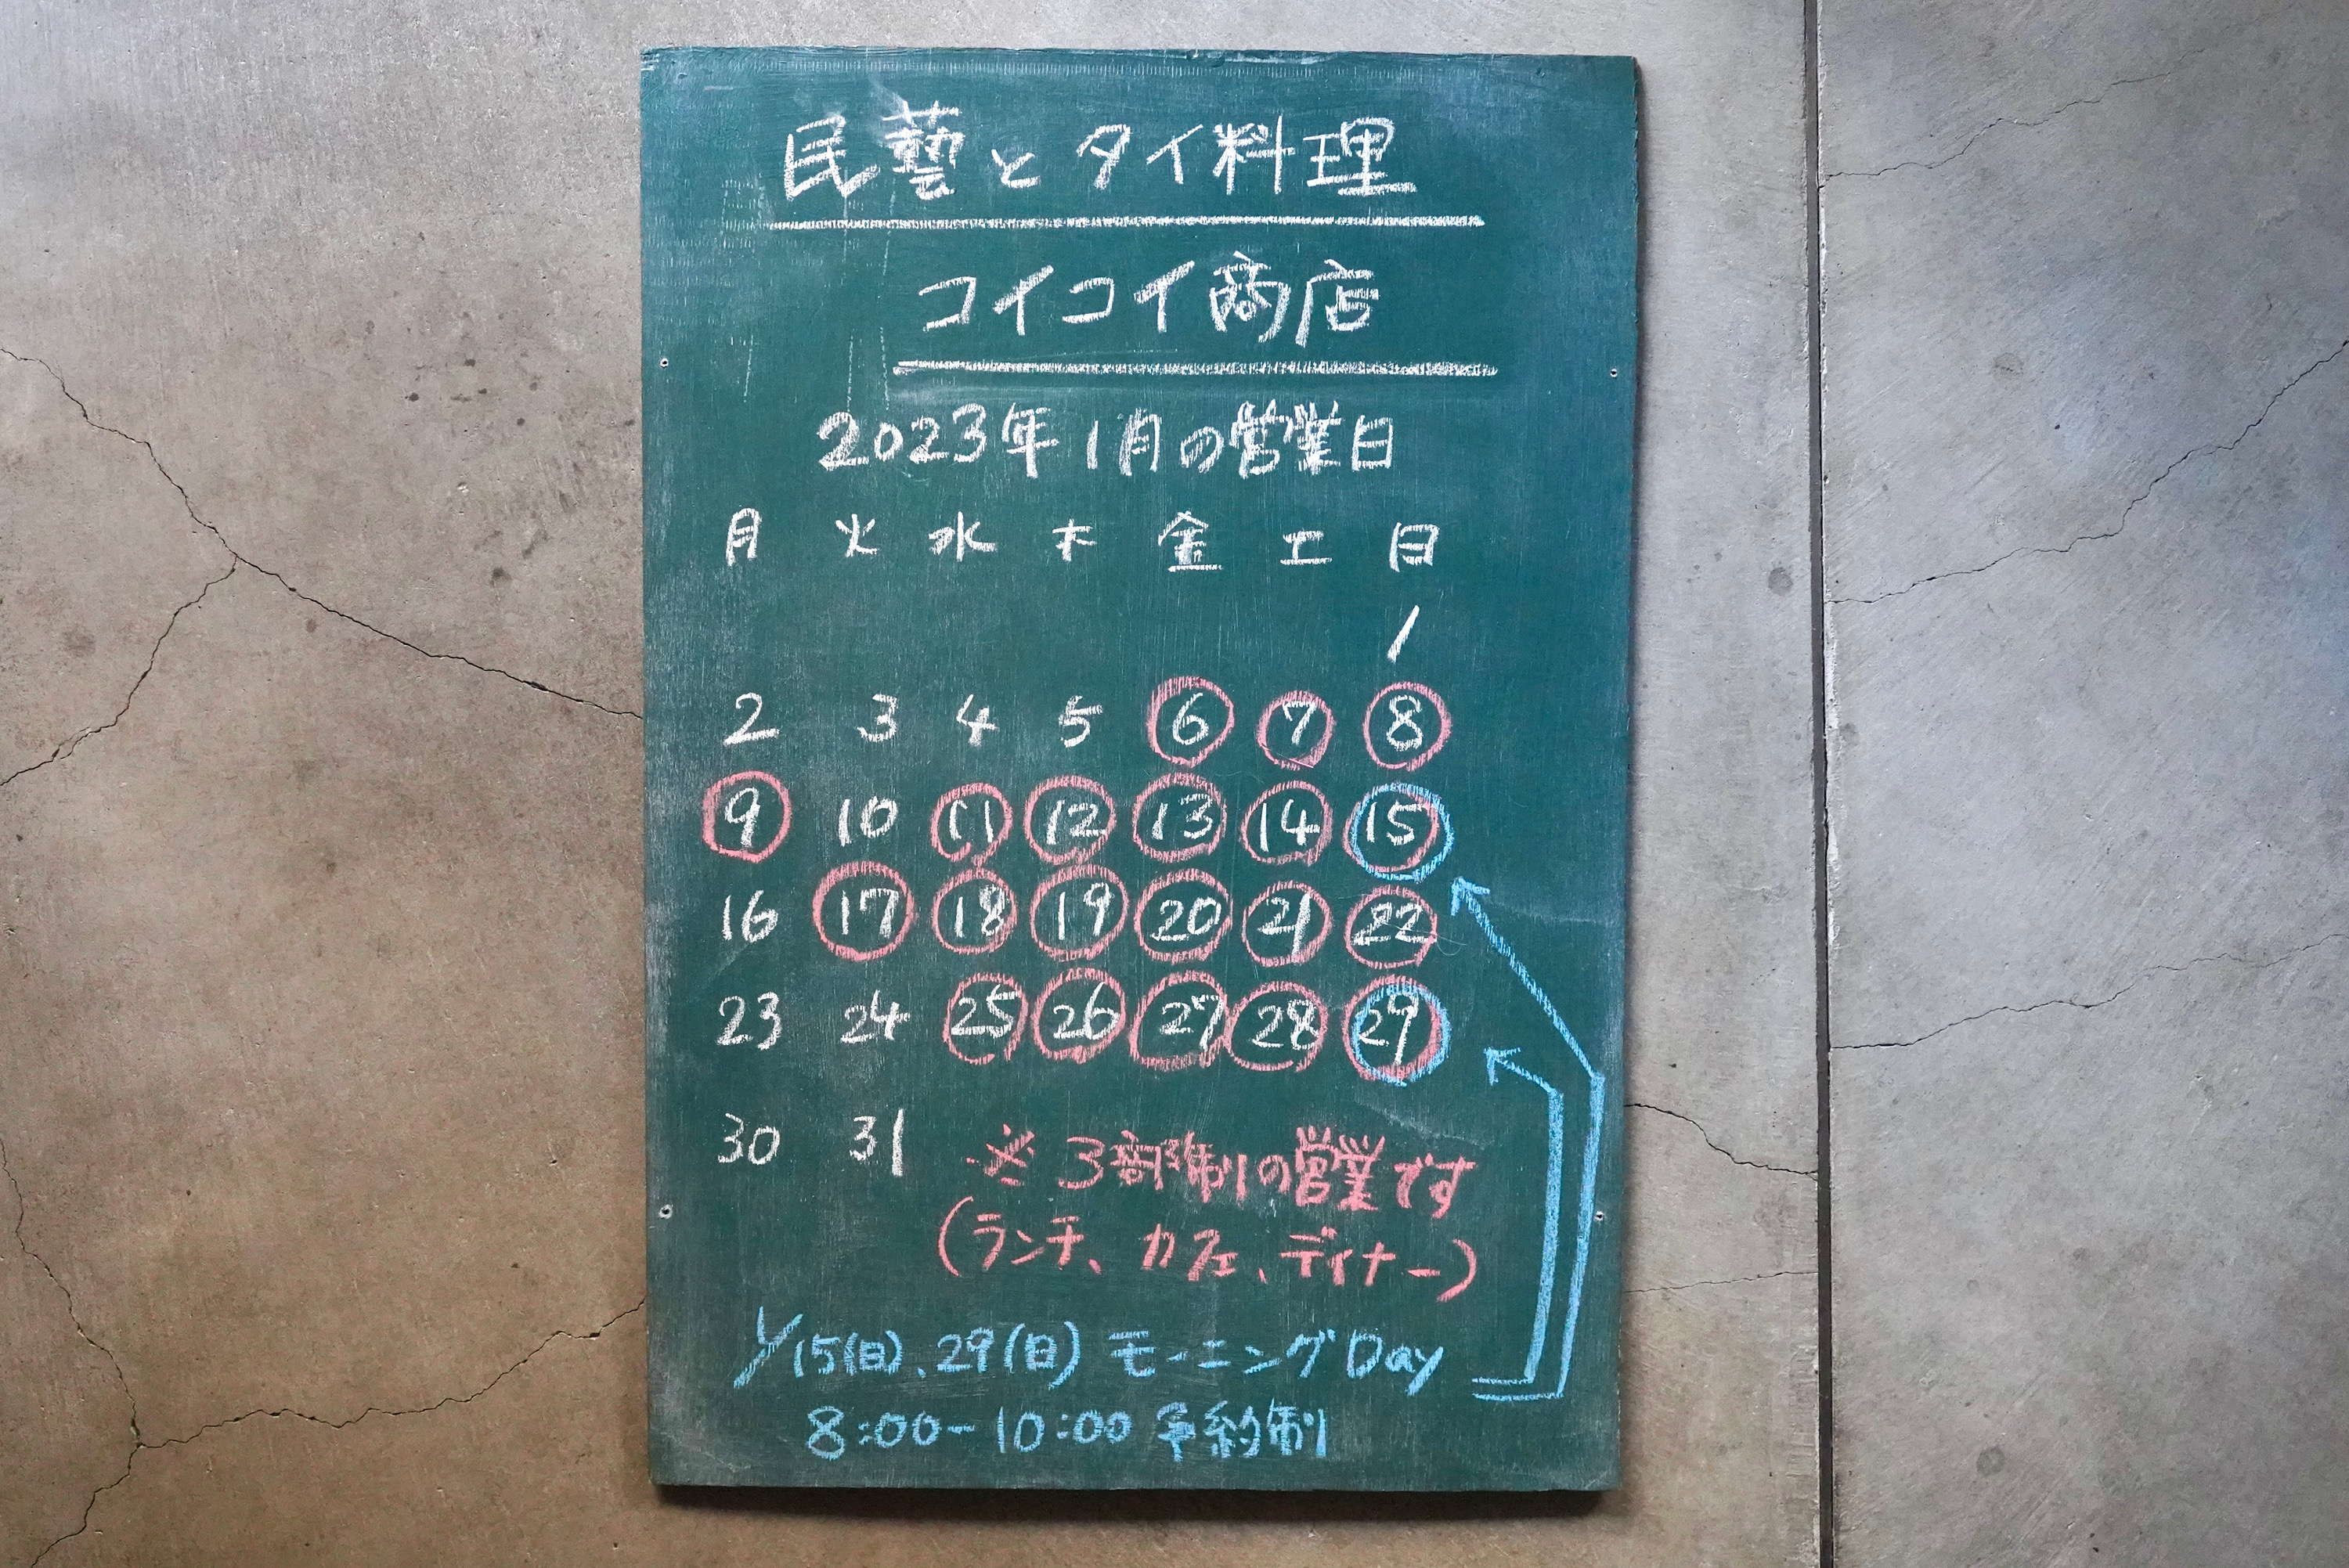 民藝とタイ料理
コイコイ商店
2023年1月の営業日
月 火 水 木 金 土 日
1
2 3 4 5 6 7 8
9 10 11 12 13 14 15
16 17 18 19 20 21 22
23 24 25 26 27 28 29
30 31
※3部制の営業です
(ランチ、カフェ、ディナー)
1/15(日)、29(日) モーニングDay
8:00-10:00 予約制